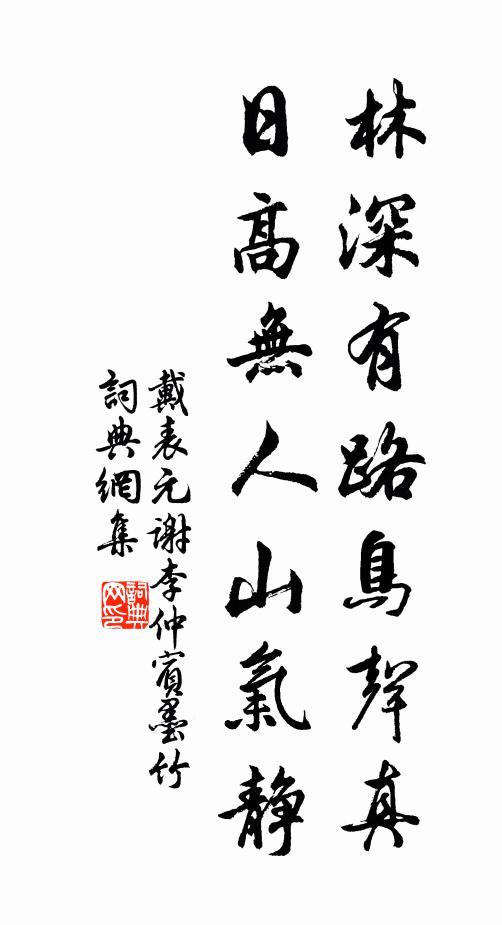 林深有路鳥聲真
日高無人山氣静
戴表元谢李仲賓墨竹
詞典網集
詞典网印